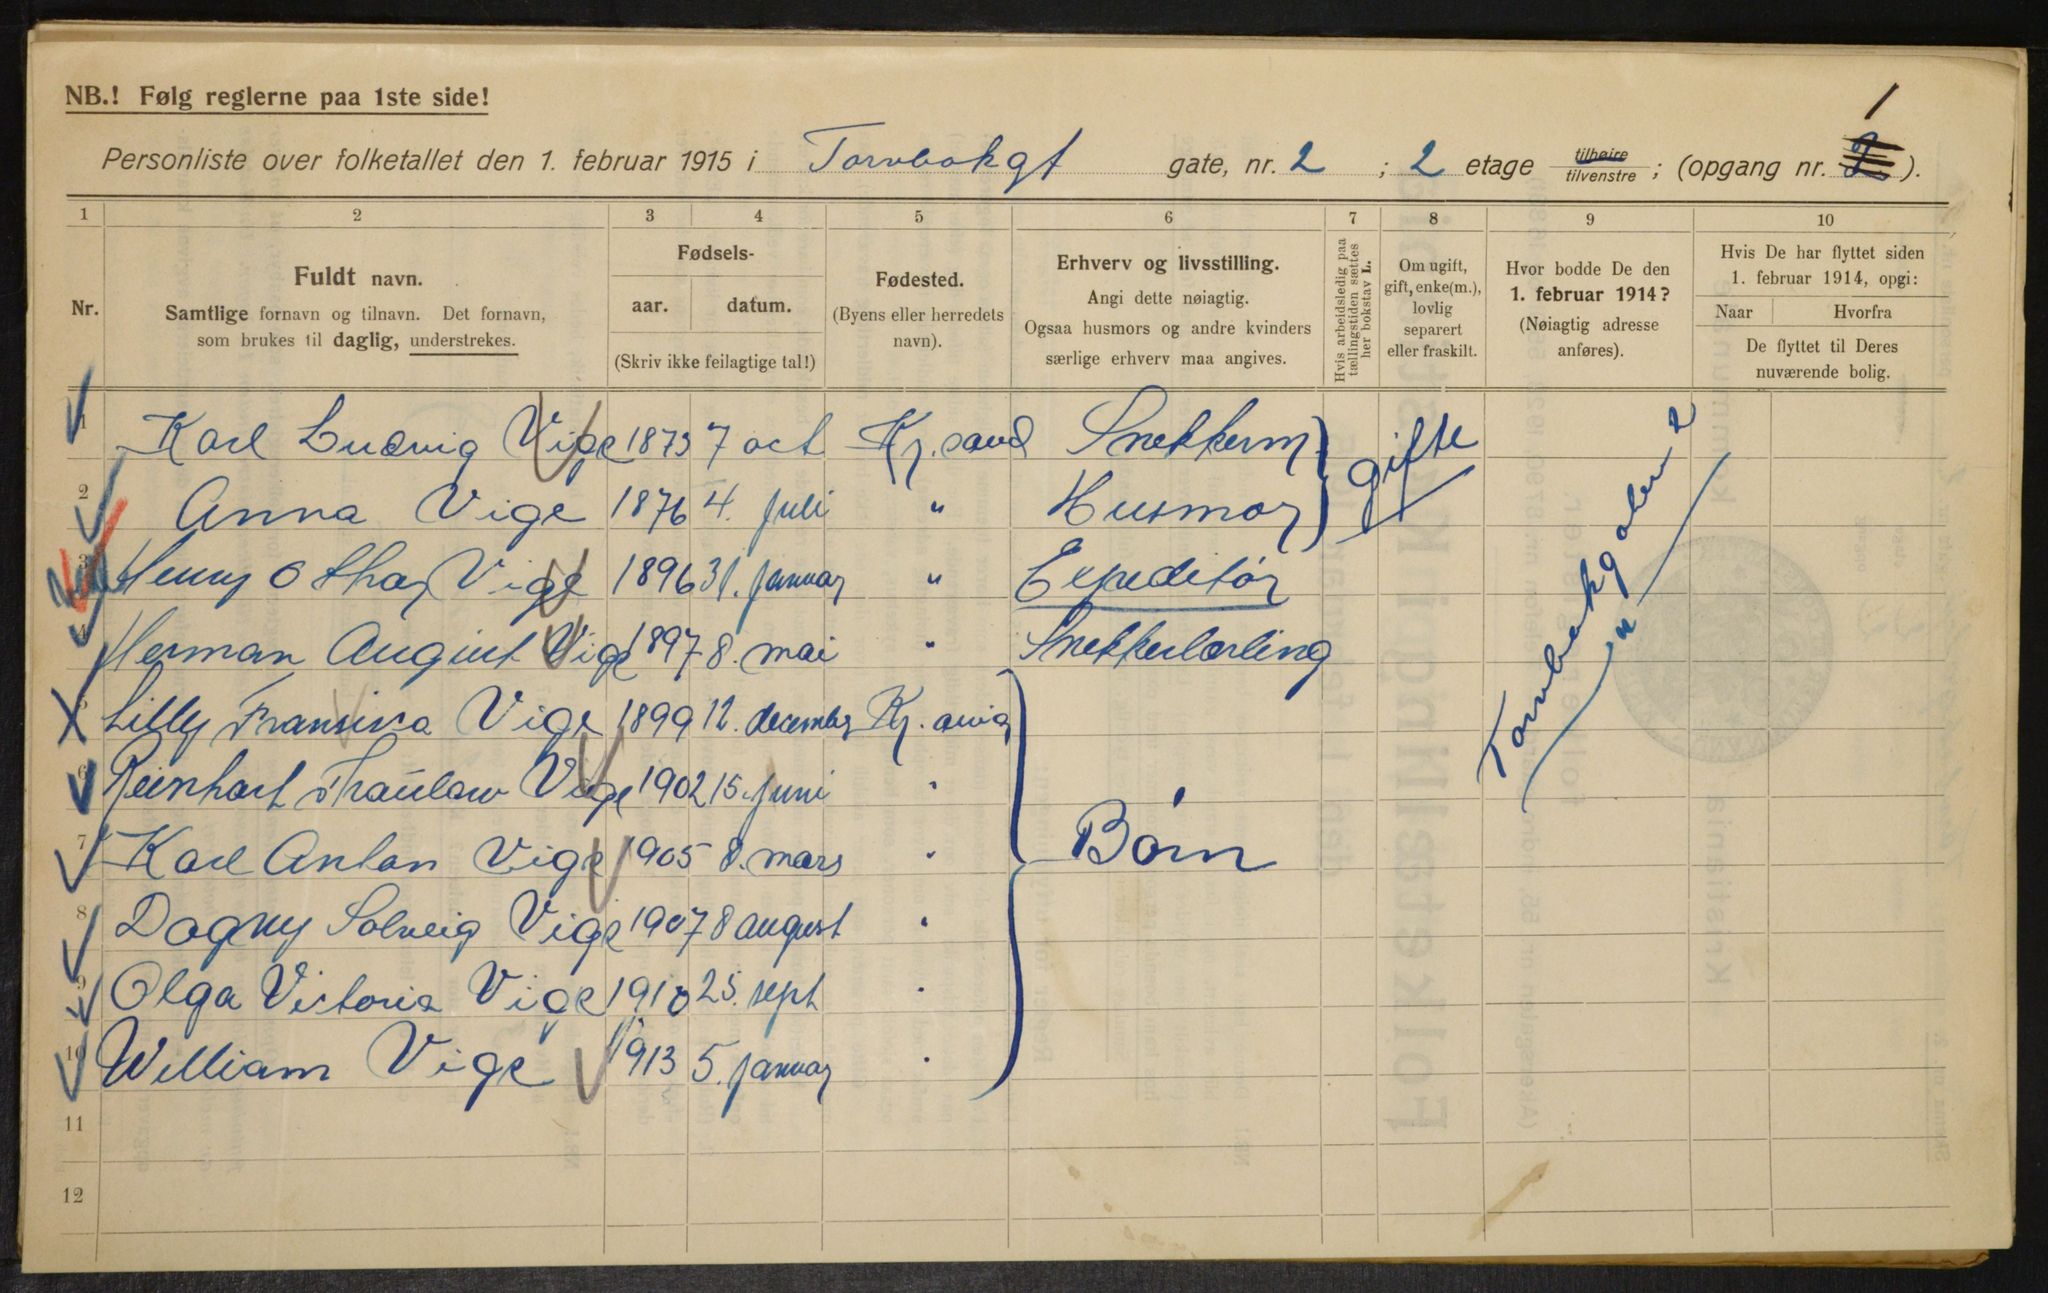 NB.! Følg reglerne paa 1ste side!
1
Personliste over folketallet den 1. februar 1915 i Tornbakgt gate, nr. 2 ; 2 etage tilhøire tilvenstre ; (opgang nr. 2 ).
1 2 3 4 5 6 7 8 9 10
Nr.
Fuldt navn.
Samtlige fornavn og tilnavn. Det fornavn,
som brukes til daglig, understrekes.
Fødsels-
aar. datum.
(Skriv ikke feilagtige tal!)
Fødested.
(Byens eller herredets
navn).
Erhverv og livsstilling.
Angi dette nøiagtig.
Ogsaa husmors og andre kvinders
særlige erhverv maa angives.
Hvis arbeidsledig paa
tællingstiden sættes
her bokstav L.
Om ugift,
gift, enke(m.),
lovlig
separert
eller fraskilt.
Hvor bodde De den
1. februar 1914?
(Nøiagtig adresse
anføres).
Hvis De har flyttet siden
1. februar 1914, opgi:
Naar Hvorfra
De flyttet til Deres
nuværende bolig.
1 Karl Ludvig Vige 1873 7 oct Kr. sand Snekkerm gifte
2 Anna Vige 1876 4. juli " Husmor
3 Henny Othar Vige 1896 31. januar " Expeditør
4 Herman August Vige 1897 8. mai " Snekkerlærling
Tornbakgaten 2
"
5 Lilly Fransisca Vige 1899 12. december Kr. ania
6 Reinhart Thaulow Vige 1902 15. juni "
7 Karl Anton Vige 1905 8. mars " Børn
8 Dagny Solveig Vige 1907 8 august "
9 Olga Victoria Vige 1910 25. sept "
10 William Vige 1913 5. januar "
11
12